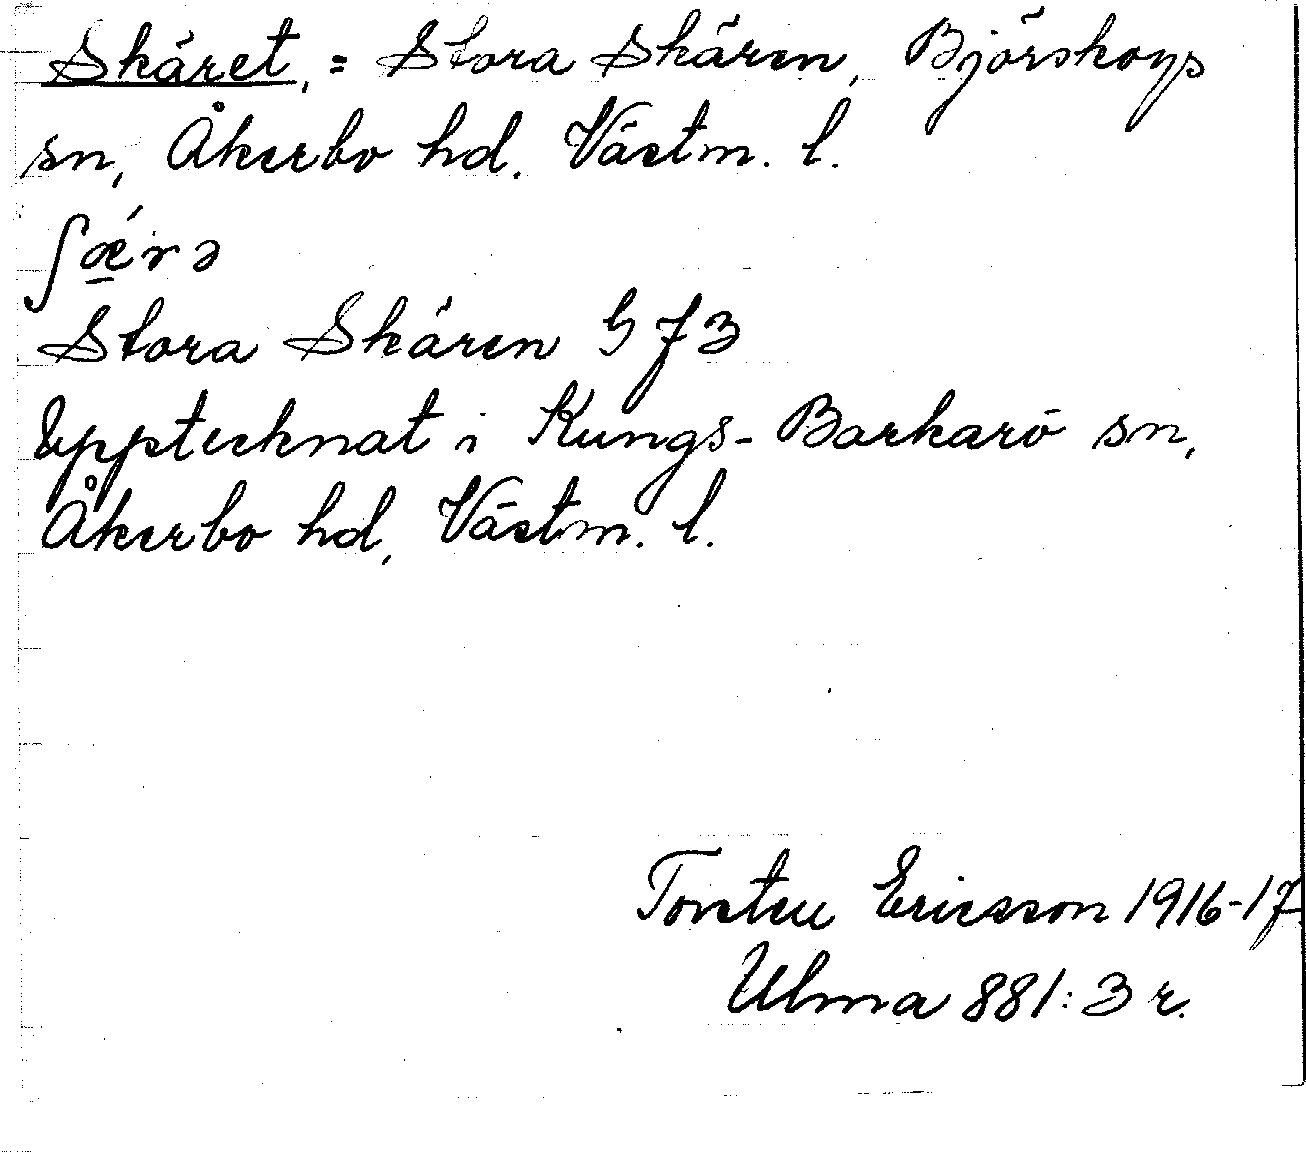 Skäret, = Stora Skären, Björskogs
sn, Åkerbo hd. Västm. l.
ʃǽrə
Stora Skären G 73
Upptecknat i Kungs-Barkarö sn,
Åkerbo hd, Västm. l.
Torsten Ericsson 1916-17
Ulma 881:3 r.